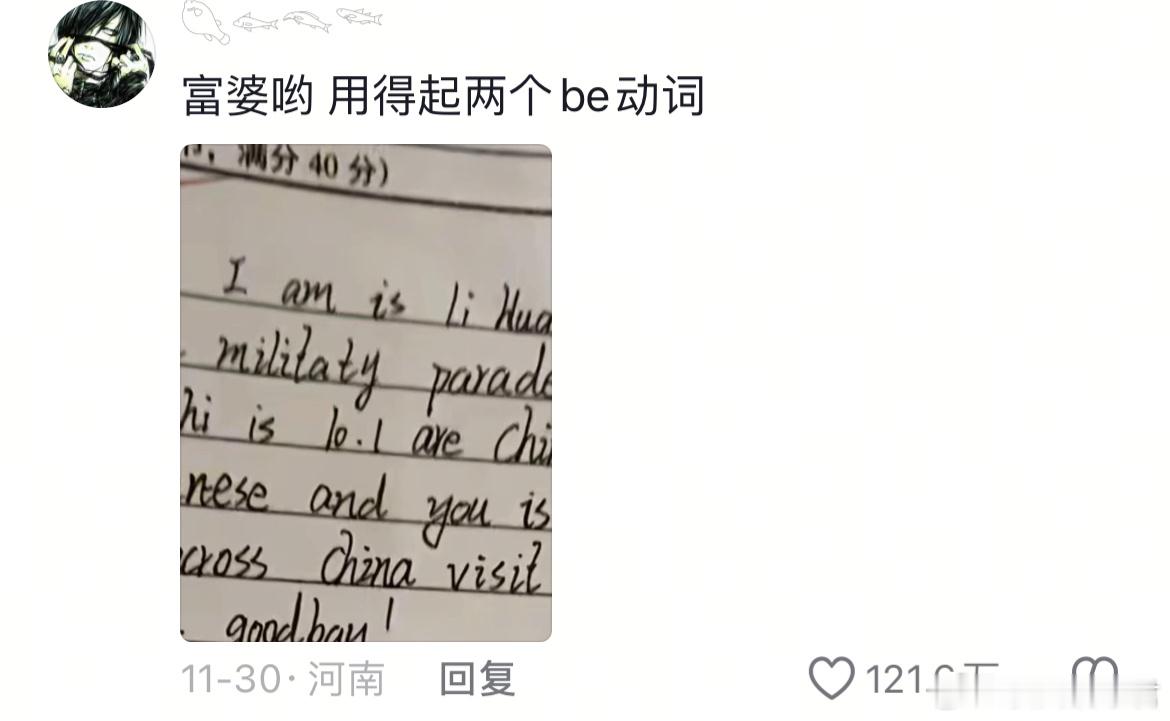 富婆哟 用得起两个be动词
满分 40 分)
I am is Li Hua
militaty parade
hi is 10.1 are Chi
nese and you is
cross China visit
goodbay!
11-30·河南 回复 121